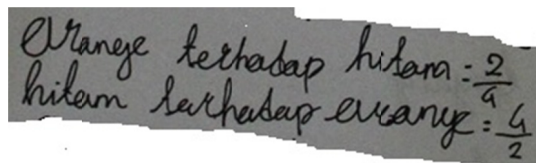 Orange terhadap hitam = 2/4
hitam terhadap orange = 4/2